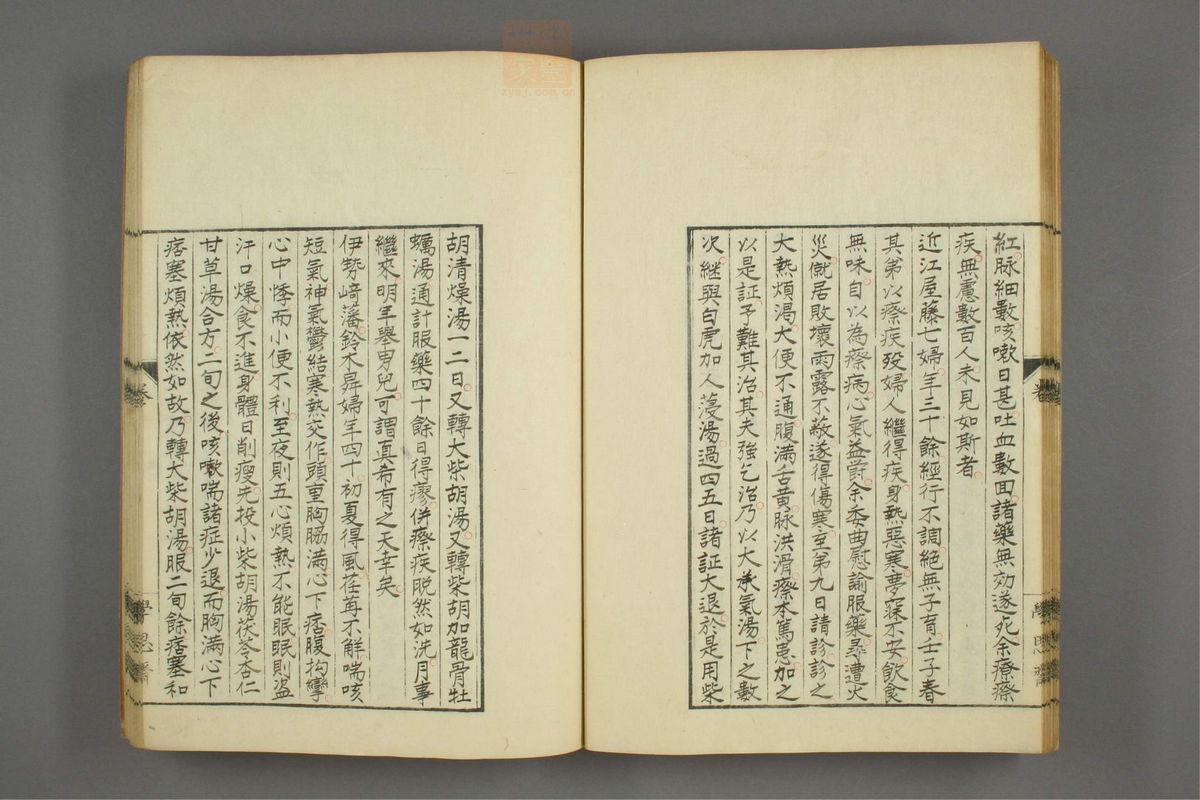 紅脉細數咳嗽日甚吐血數回諸藥無効遂死余療瘵
疾無慮數百人未見如斯者
近江屋藤七婦年三十餘經行不調絕無子育壬子春
其弟以瘵疾歿婦人繼得疾身熱惡寒夢寐不安飲食
無味自以為瘵病心氣益鬱余委曲慰諭服藥暴遭火
災僦居敗壞雨露不蔽遂得傷寒至第九日請診診之
大熱煩渴大便不通腹滿舌黄脉洪滑瘵本篤患加之
以是証予難其治其夫強乞治乃以大承氣湯下之數
次継與白虎加人薓湯過四五日諸証大退於是用柴
胡清燥湯一二日又轉大柴胡湯又轉柴胡加龍骨牡
蠣湯通計服藥四十餘日得瘳併瘵疾脫然如洗月事
繼來明年舉男兒可謂真希有之天幸矣
伊勢崎藩鈴木昇婦年四十初夏得風荏苒不觧喘咳
短氣神氣鬱結寒熱交作頭重胸脇滿心下痞腹拘攣
心中悸而小便不利至夜則五心煩熱不能眠眠則盗
汗口燥食不進身體日削瘦先投小柴胡湯茯苓杏仁
甘草湯合方二旬之後咳嗽喘諸症少退而胸滿心下
痞塞煩熱依然如故乃轉大柴胡湯服二旬餘痞塞和
卷
學思齋
zysj.com.cn